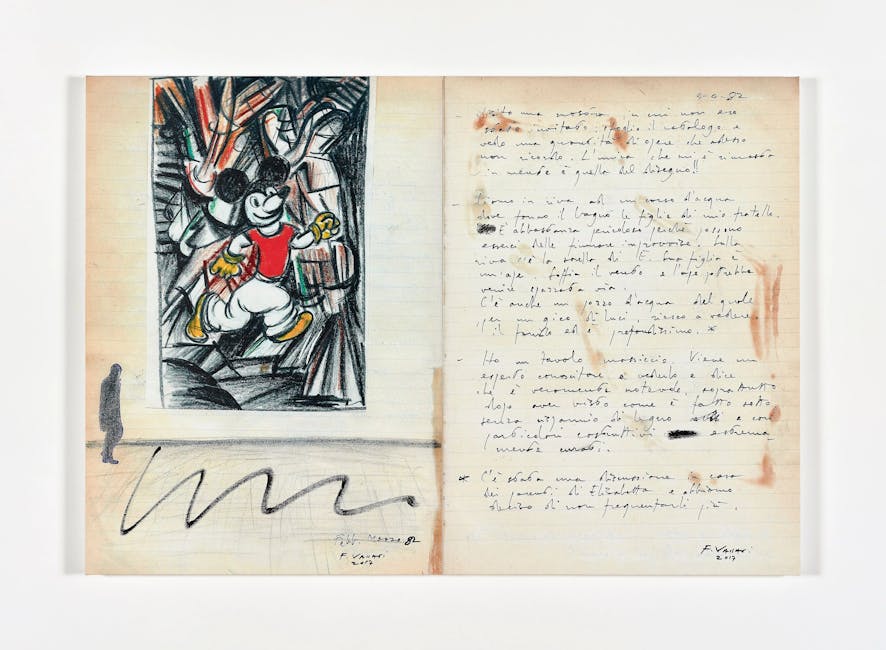 Febb. Marzo 82
F. Vaccari
2017
9-2-82
una mostra in cui non ero
stato invitato. Sfoglio il catalogo e
vedo una quantità di opere che adesso
non ricordo. L'unica che mi è rimasta
in mente è quella del disegno!!
- in riva ad un corso d'acqua
dove fanno il bagno le figlie di mio fratello.
È abbastanza pericoloso perché possono
esserci delle fiumare improvvise. Sulla
riva c'è la sorella di E. Sua figlia è
un'ape. Soffia il vento e l'ape potrebbe
venire spazzata via.
C'è anche un pozzo d'acqua del quale
per un gioco di luci, riesco a vedere
il fondo ed è profondissimo. *
- Ho un tavolo massiccio. Viene un
esperto conoscitore a vederlo e dice
che è veramente notevole, soprattutto
dopo aver visto come è fatto sotto
senza risparmio di legno e con
particolari costruttivi estrema
mente curati.
* C'è stata una discussione in casa
dei parenti di Elisabetta e abbiamo
deciso di non frequentarli più.
F. Vaccari
2017